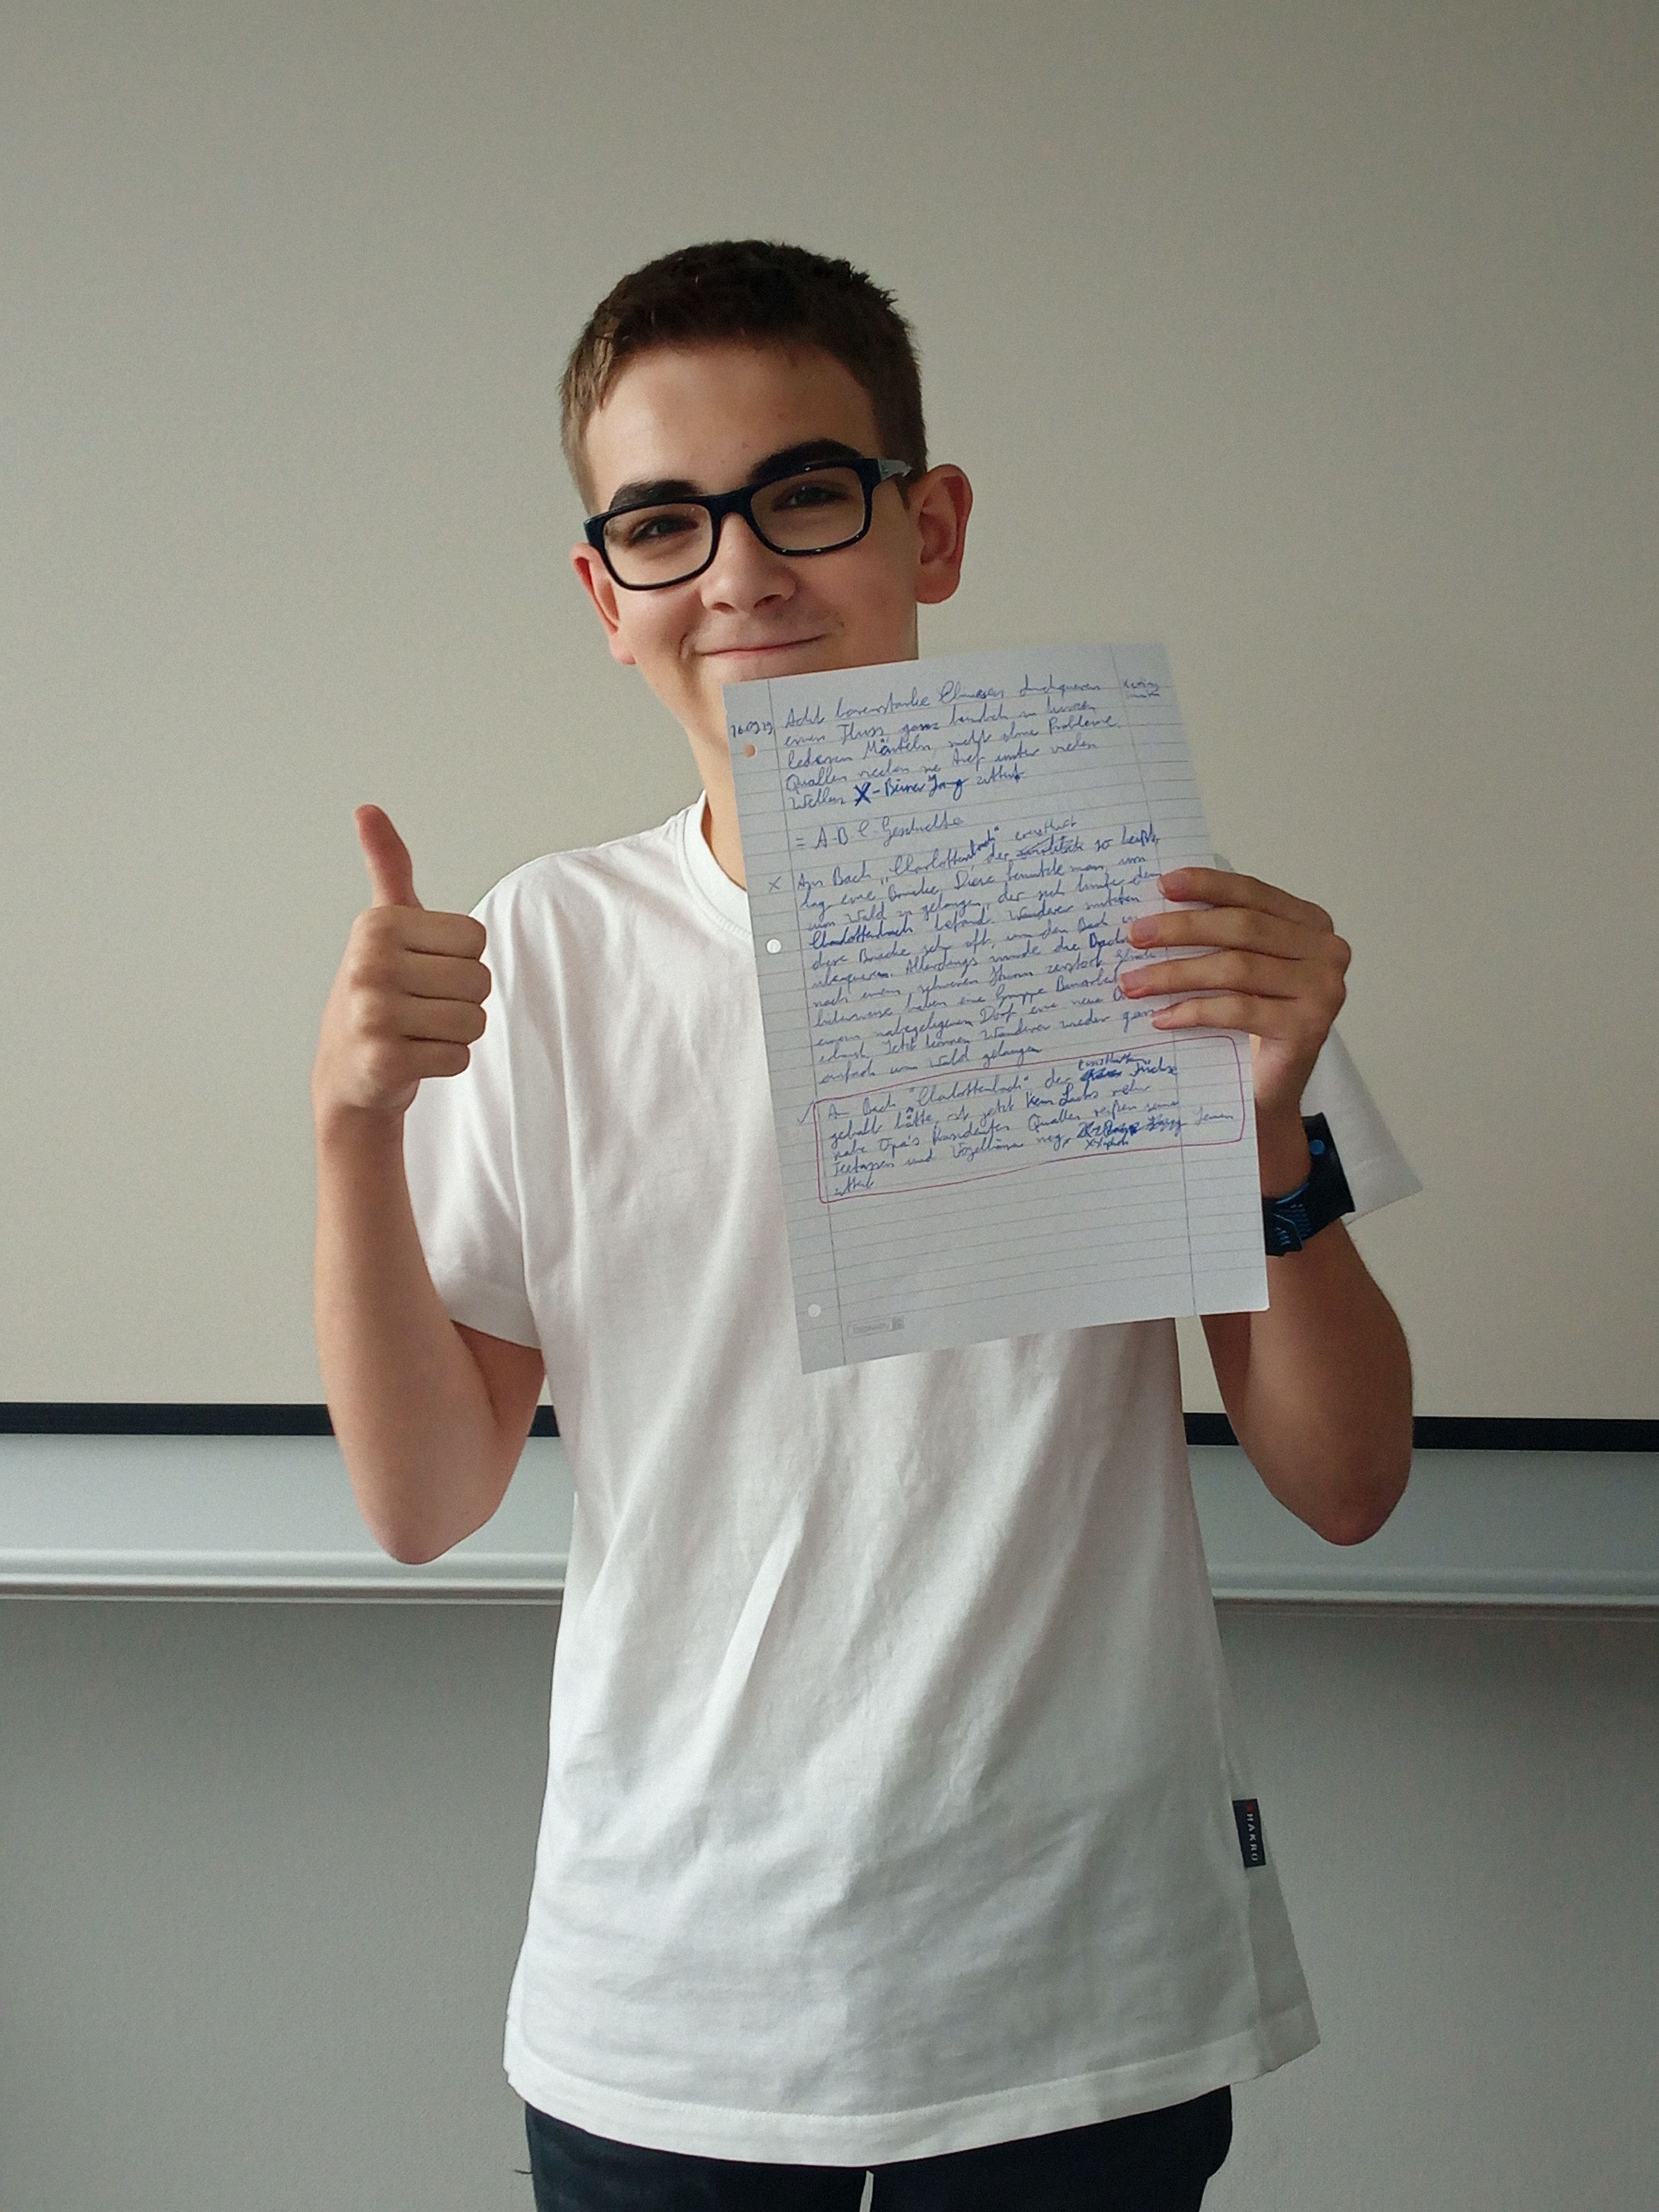 16.09.23 Acht bärenstarke Chinesen durchqueren
einen Fluss, ganz heimlich in kurzen
ledernen Mänteln, nicht ohne Probleme.
Quallen tief unter vielen
Wellen X-Beiner Jang zittert
= A-B-C-Geschichte
X Am Bach „Charlottenbach“, der ernsthaft so heißt,
lag eine Brücke. Diese benutzte man, um
zum Wald zu gelangen, der sich hinter dem
Charlottenbach befand. Wanderer nutzten
diese Brücke sehr oft, um den Bach zu
überqueren. Allerdings wurde die
nach einem schweren Sturm zerstört.
haben eine Gruppe
einem nahegelegenen Dorf eine neue
erbaut. Jetzt können Wanderer wieder ganz
einfach zum Wald gelangen
✓ Am Bach "Charlottenbach" der ernsthaft Füchse
gehabt hätte, ist jetzt kein Luchs mehr
nahe Opa's Residenter Quallen seine
Teetassen und
zittert
HAKRO